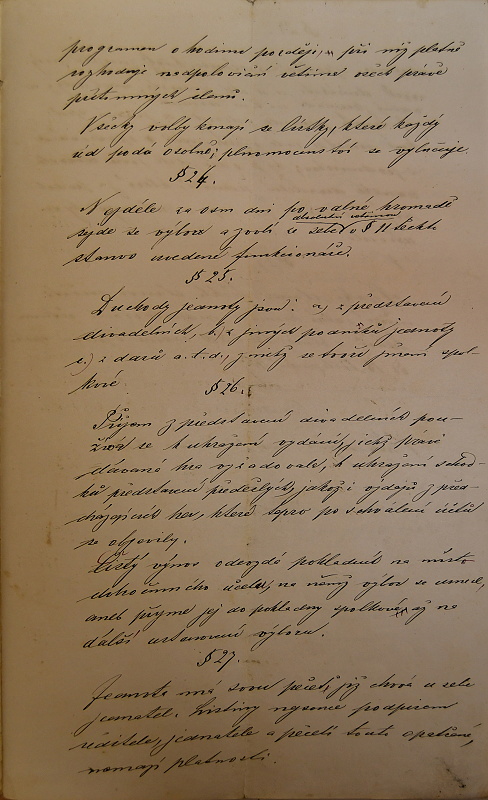 programem o hodinu později, při níž platně
rozhoduje nadpoloviční většina všech právě
přítomných členů.
Všecky volby konají se lístky, které každý
úd podá osobně; plnomocenství se vylučuje.
§ 24.
Nejdéle za osm dní po valné hromadě
sejde se výbor a zvolí ze sebe absolutní většinou v § 11 těchto
stanov uvedené funkcionáře.
§ 25.
Důchody jednoty jsou: a) z představení
divadelních, b.) z jiných podniků jednoty
c.) z darů a. t. d., z nichž se tvoří jmění spol-
kové.
§ 26.
Příjem z představení divadelních pou-
žívá se k uhražení vydání, jichž právě
dávaná hra vyžadovala, k uhražení schod-
ků představení předešlých, jakož i výdajů z před-
cházejících her, které teprv po schválení účtů
se objevily.
Čistý výnos odevzdá pokladník na místo
dobročinného účelu, na němž výbor se usnesl,
aneb přijme jej do pokladny spolkové až na
další ustanovení výboru.
§ 27.
Jednota má svou pečeť, již chová u sebe
jednatel. Listiny nejsouce podpisem
ředitele, jednatele a pečetí touto opatřené,
nemají platnosti.